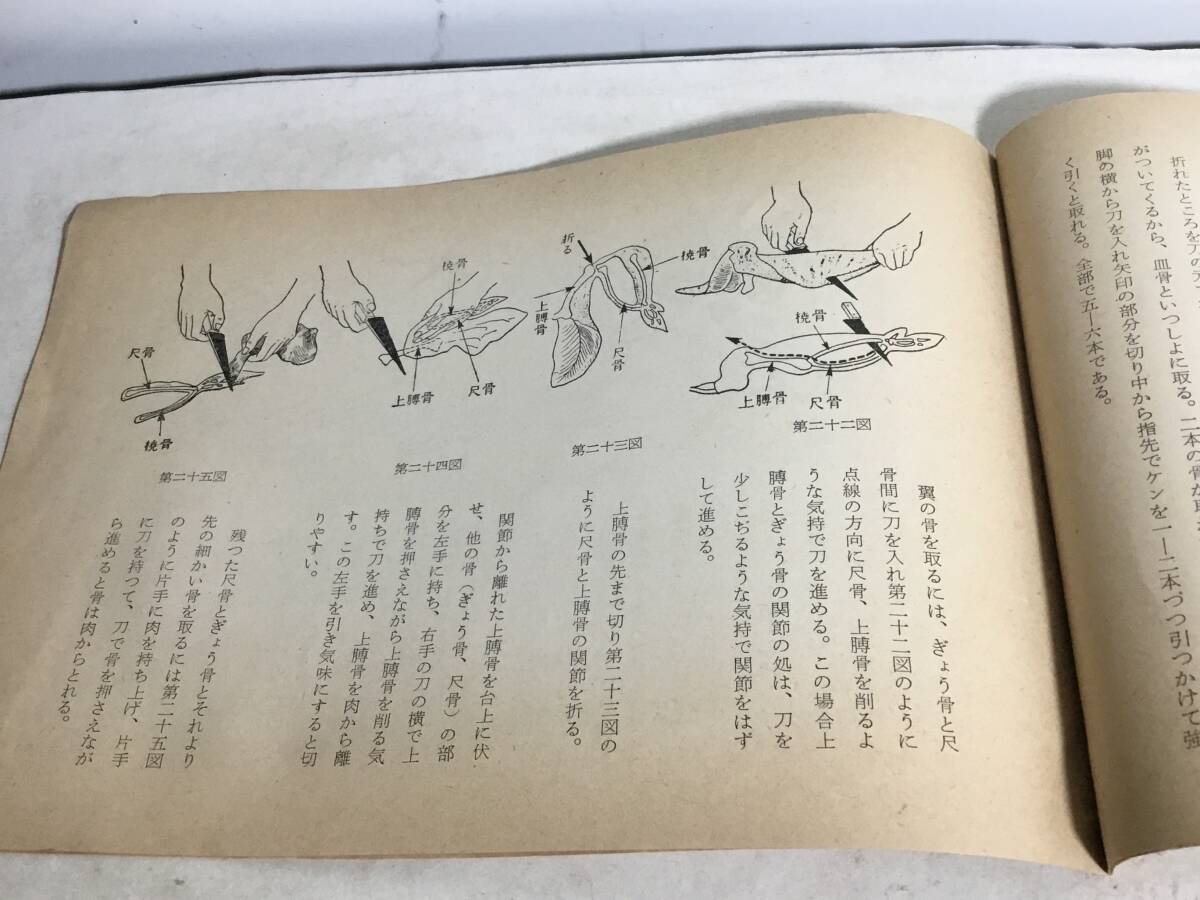 折れたところを刀の
がついてくるから、血骨といつしよに取る。二本の骨が
脚の横から刀を入れ矢印の部分を切り中から指先でケンを一―二本づつ引つかけて強
く引くと取れる。全部で五―六本である。
橈骨
尺骨
上膊骨
第二十二図
折る
橈骨
上膊骨
尺骨
第二十三図
橈骨
上膊骨
尺骨
第二十四図
尺骨
橈骨
第二十五図
翼の骨を取るには、ぎょう骨と尺
骨間に刀を入れ第二十二図のように
点線の方向に尺骨、上膊骨を削るよ
うな気持で刀を進める。この場合上
膊骨とぎょう骨の関節の処は、刀を
少しこぢるような気持で関節をはず
して進める。
上膊骨の先まで切り第二十三図の
ように尺骨と上膊骨の関節を折る。
関節から離れた上膊骨を台上に伏
せ、他の骨(ぎょう骨、尺骨)の部
分を左手に持ち、右手の刀の横で上
膊骨を押さえながら上膊骨を削る気
持ちで刀を進め、上膊骨を肉から離
す。この左手を引き気味にすると切
りやすい。
残つた尺骨とぎょう骨とそれより
先の細かい骨を取るには第二十五図
のように片手に肉を持ち上げ、片手
に刀を持つて、刀で骨を押さえなが
ら進めると骨は肉からとれる。